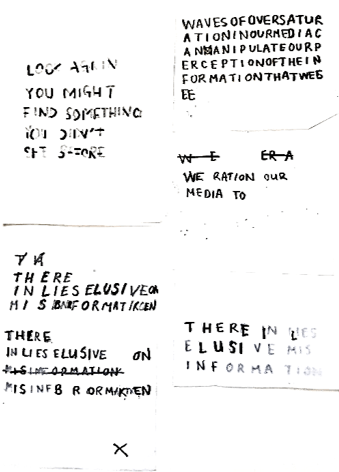 LOOK AGAIN
YOU MIGHT
FIND SOMETHING
YOU DIDN'T
SEE BEFORE
WAVESOFOVERSATUR
ATIONINOURMEDIAC
ANMANIPULATEOURP
ERCEPTIONOFTHEIN
FORMATIONTHATWES
EE
W E ERA
WE RATION OUR
MEDIA TO
THERE
IN LIES ELUSIVE
THERE
IN LIES ELUSIVE ON
MISINFORMATION
THERE IN LIES
ELUSIVE MIS
INFORMATION